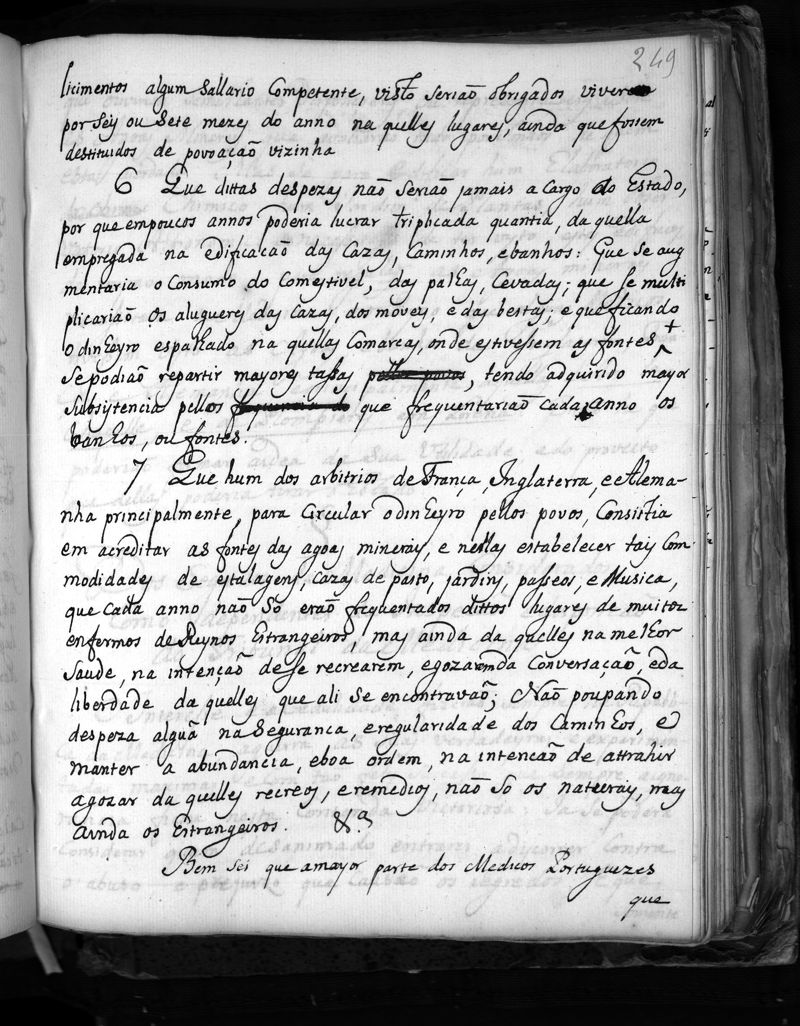 249
licimentos algum Sallario Competente, visto serião obrigados viverem
por Seis ou Sete mezes do anno na quelles lugares, ainda que fossem
destituidos de povoação vizinha
6 Que dittas despezas não Serião jamais a Cargo do Estado,
por que em poucos annos poderia lucrar triplicada quantia, da quella
empregada na edificacão das Cazas, Caminhos, e banhos: Que Se aug
mentaria o Consumo do Comestivel, das palhas, Cevadas; que se multi
plicarião os alugueres das Cazas, dos moveis, e das bestas; e que ficando
o dinheyro espalhado na quellas Comarcas, onde estivessem as fontes +
Se podião repartir mayores tassas pellos povos, tendo adquirido mayor
Subsystencia pellos frequencia do que frequentarião cada anno os
banhos, ou fontes.
7 Que hum dos arbitrios de França, Inglaterra, e Alema-
nha principalmente, para Circular o dinheyro pellos povos, Consistia
em acreditar as fontes das agoas minerais, e nellas estabelecer tais Com
modidades de estalagens, Cazas de pasto, jardins, passeos, e Musica,
que Cada anno não Só erão frequentados dittos lugares de muitos
enfermos de Reynos Estrangeiros, mas ainda da quelles na melhor
Saude, na intenção de se recrearem, e gozarem da Conversação, e da
liberdade da quelles que ali Se encontravão; Não poupando
despeza alguã na Seguranca, e regularidade dos Caminhos, e
manter a abundancia, e boa ordem, na intencão de attrahir
a gozar da quelles recreos, e remedios, não Só os naturais, mas
ainda os Estrangeiros. &ª
Bem Sei que a mayor parte dos Medicos Portuguezes
que